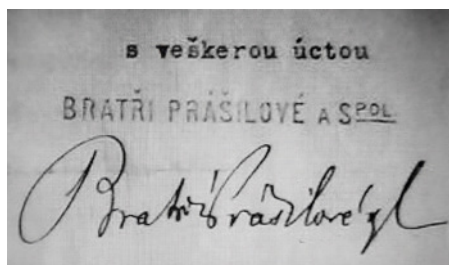 s veškerou úctou
BRATŘI PRÁŠILOVÉ A SPOL
Bratři Prášilové